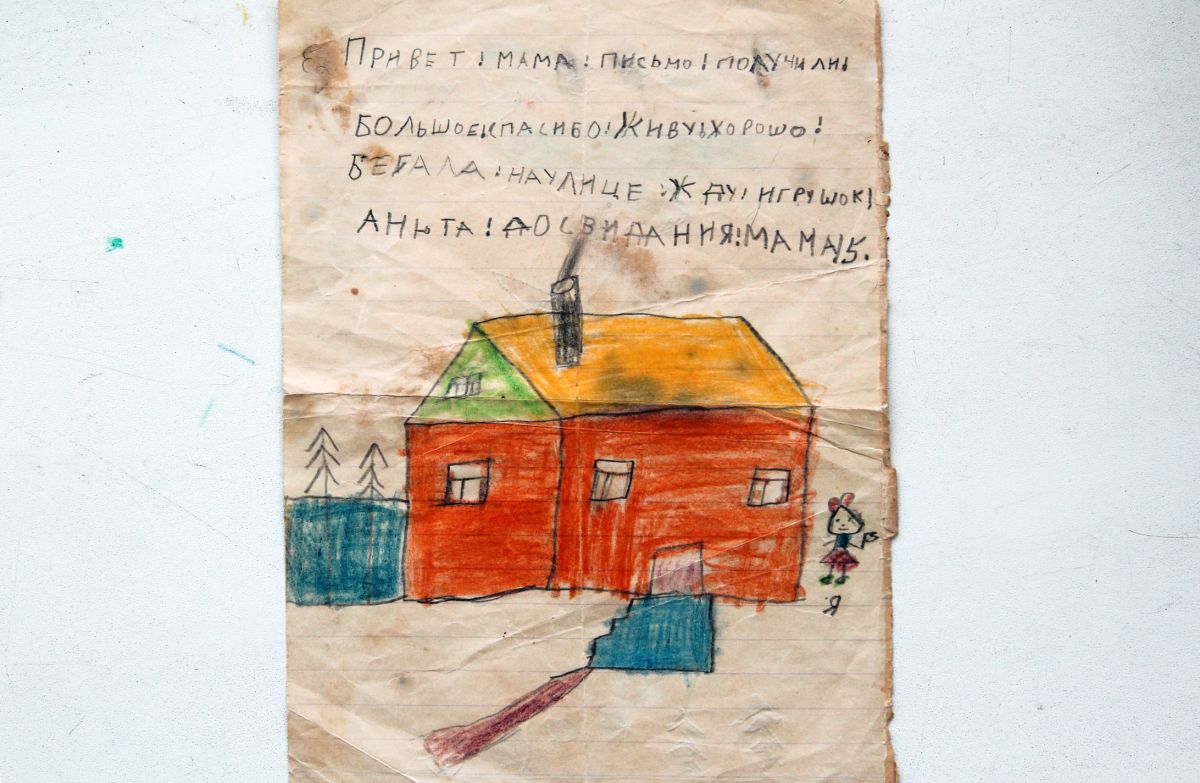 ПРИВЕТ! МАМА! ПИСЬМО! ПОЛУЧИЛИ!
БОЛЬШОЕСПАСИБО! ЖИВУ! ХОРОШО!
БЕГАЛА! НАУЛИЦЕ! ЖДУ! ИГРУШОК!
АНЮТА! ДОСВИДАНИЯ! МАМА! 5.
Я